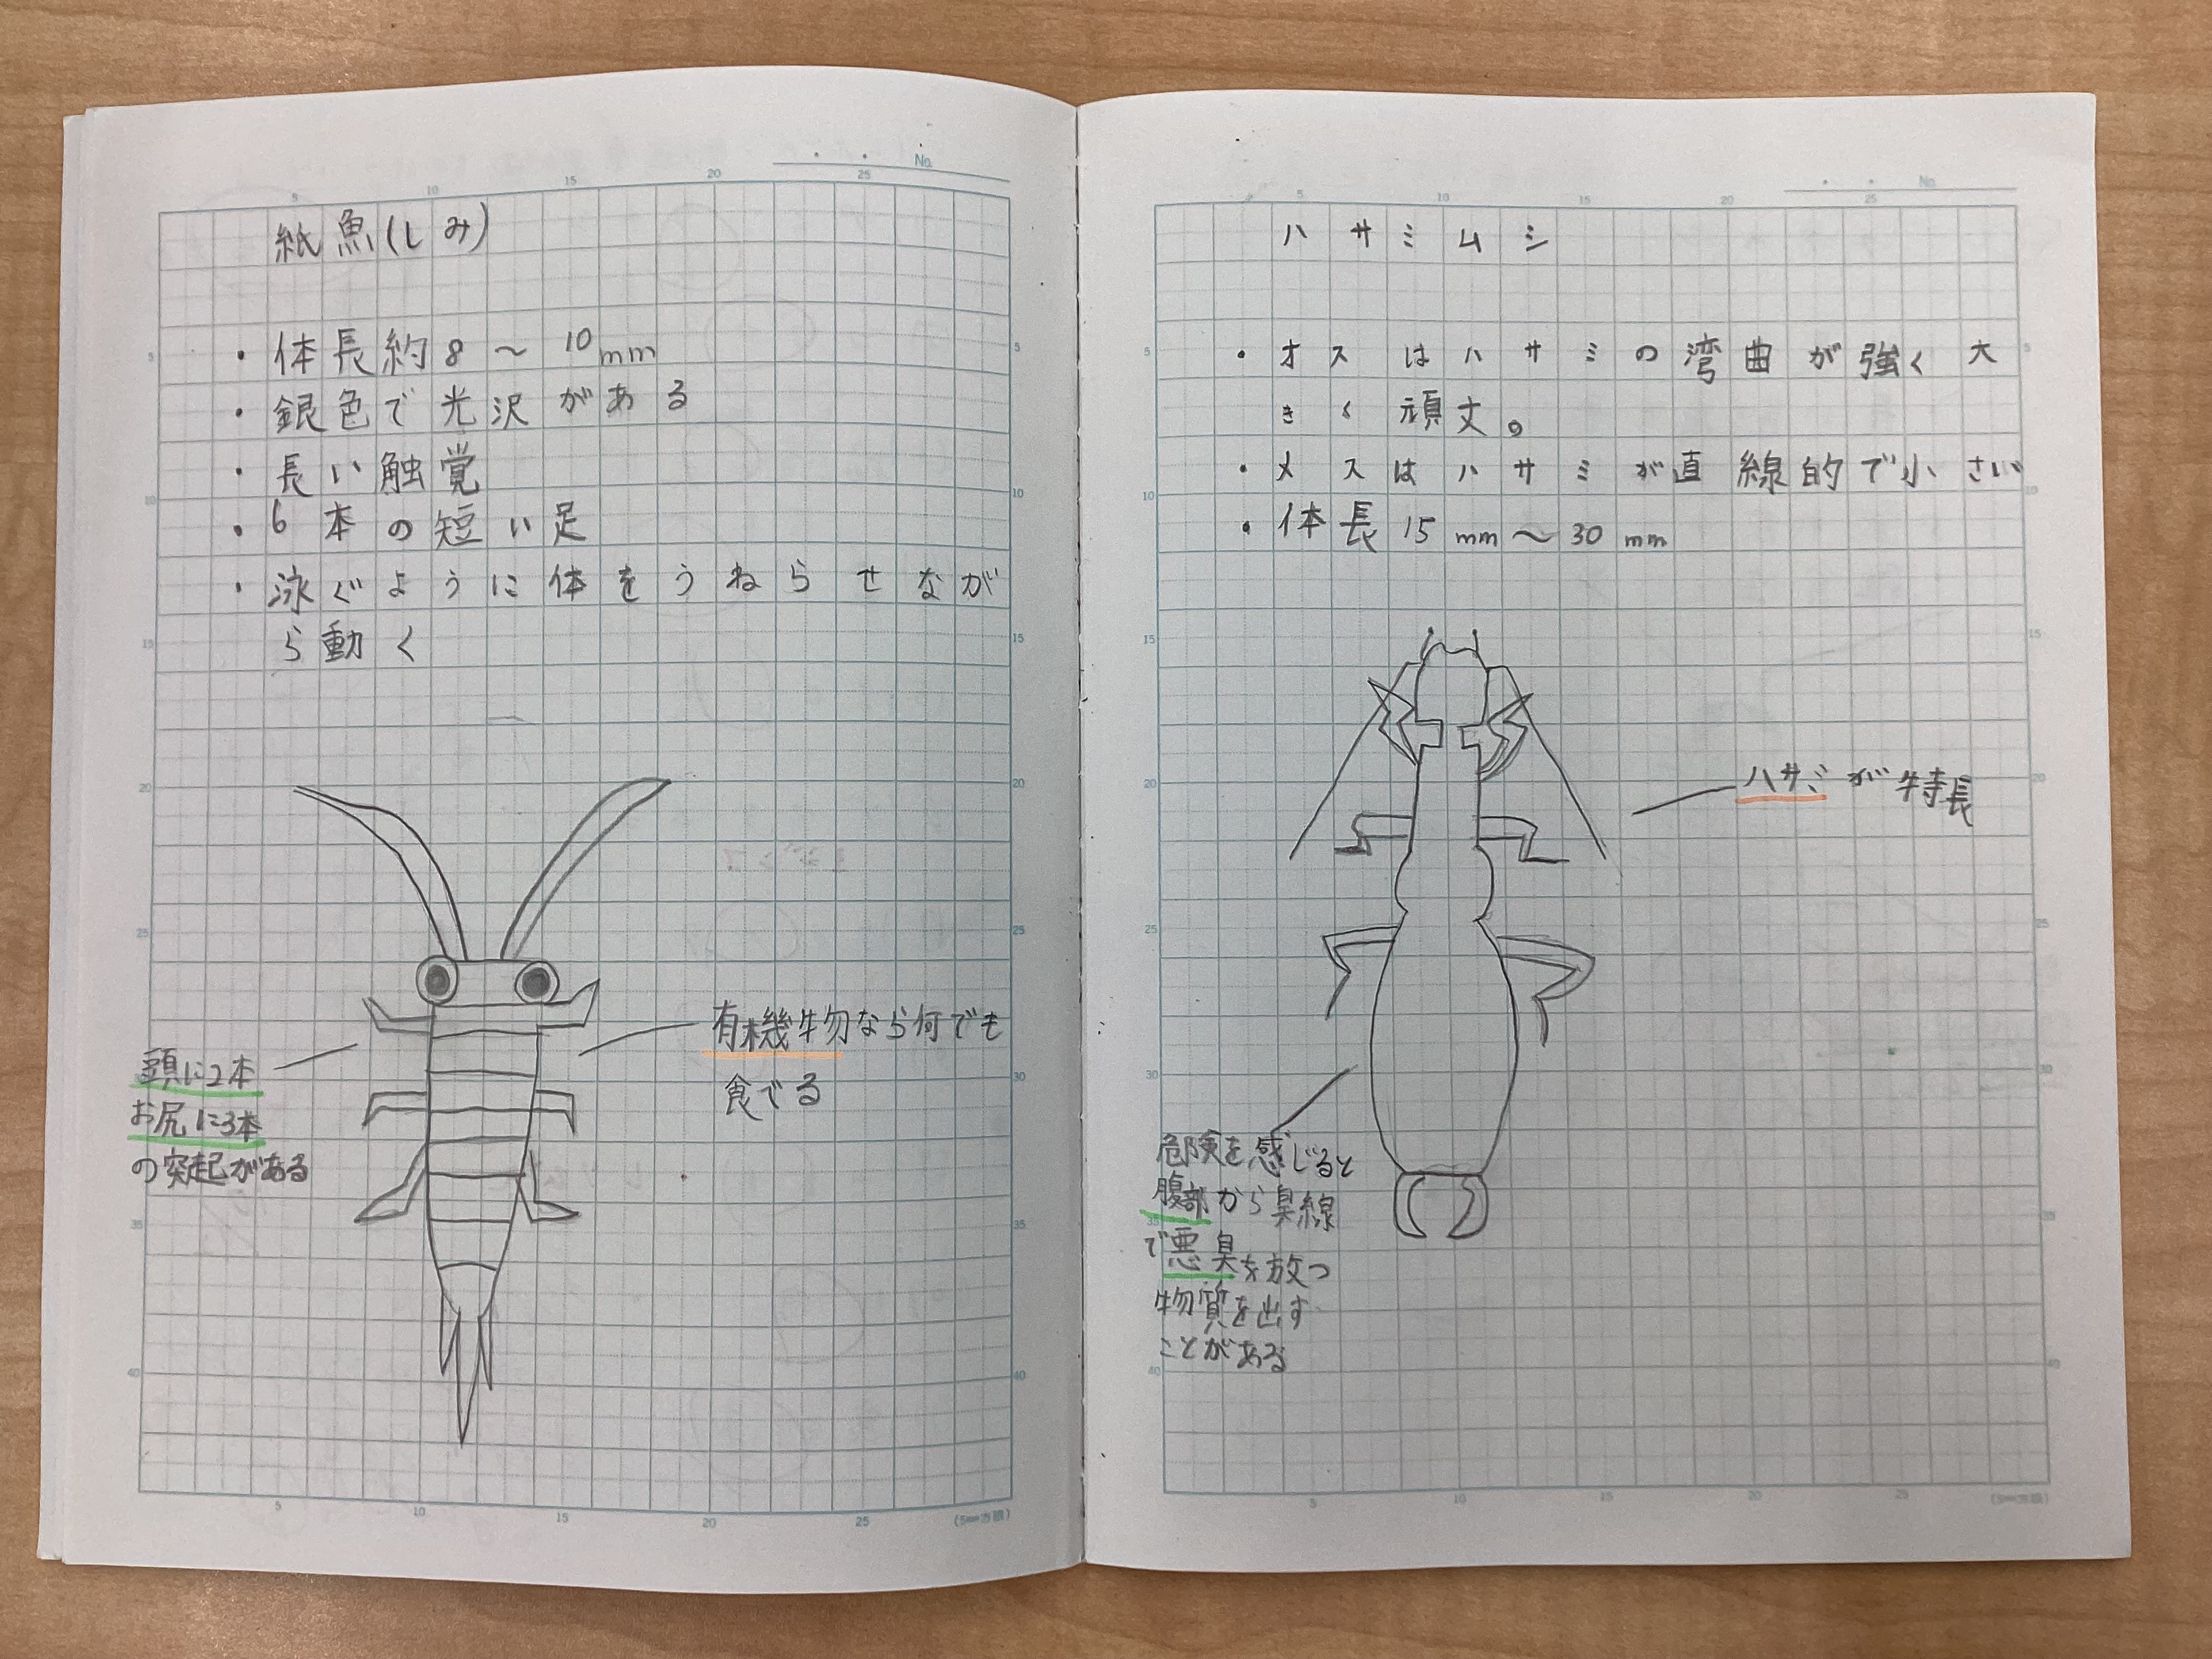 No.
紙魚(しみ)
・体長約8〜10mm
・銀色で光沢がある
・長い触覚
・6本の短い足
・泳ぐように体をうねらせなが
ら動く
頭に2本
お尻に3本
の突起がある
有機物なら何でも
食でる
(5mm方眼)
No.
ハサミムシ
・オスはハサミの湾曲が強く大
きく頑丈。
・メスはハサミが直線的で小さい
・体長15mm〜30mm
ハサミが特長
危険を感じると
腹部から臭線
で悪臭を放つ
物質を出す
ことがある
(5mm方眼)